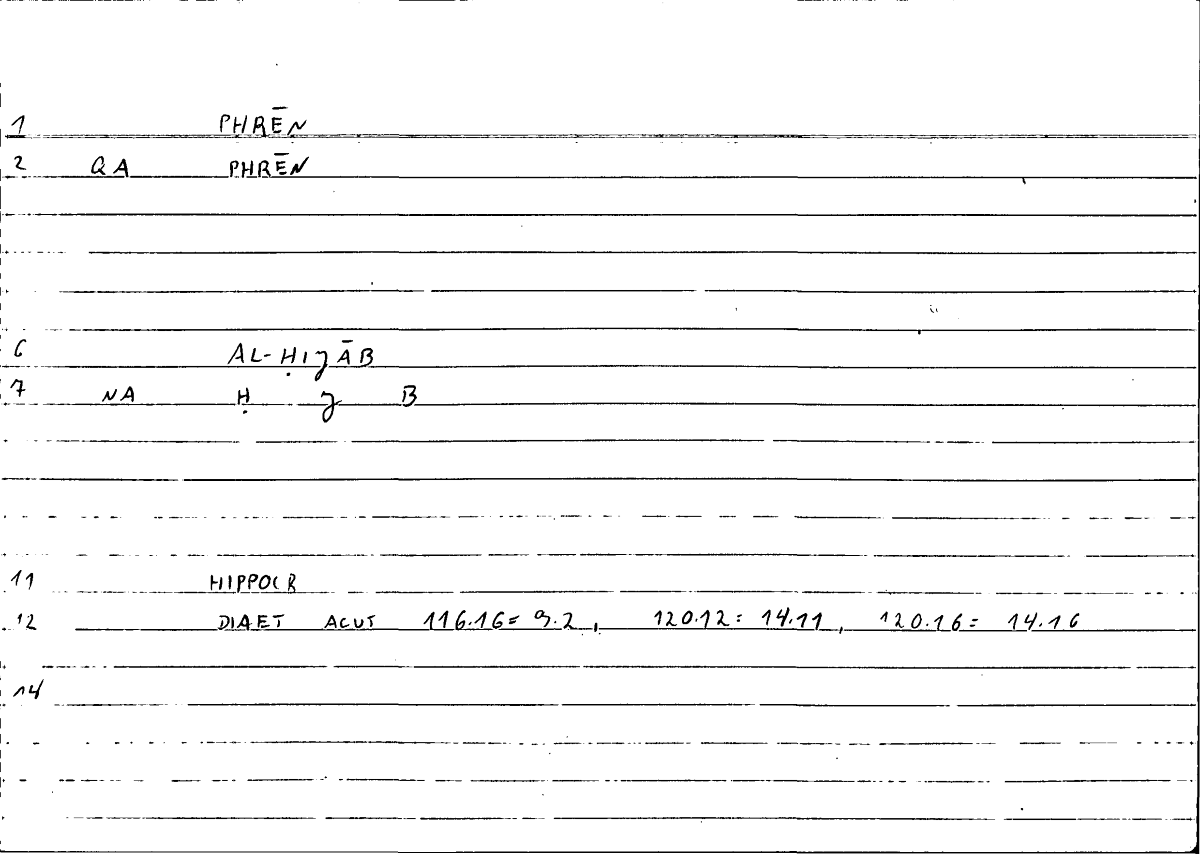 1 PHRĒN
2 QA PHRĒN
6 AL-ḤIJĀB
7 NA Ḥ J B
11 HIPPOCR
12 DIAET ACUT 116.16= 9.2, 120.12= 14.11, 120.16= 14.16
14